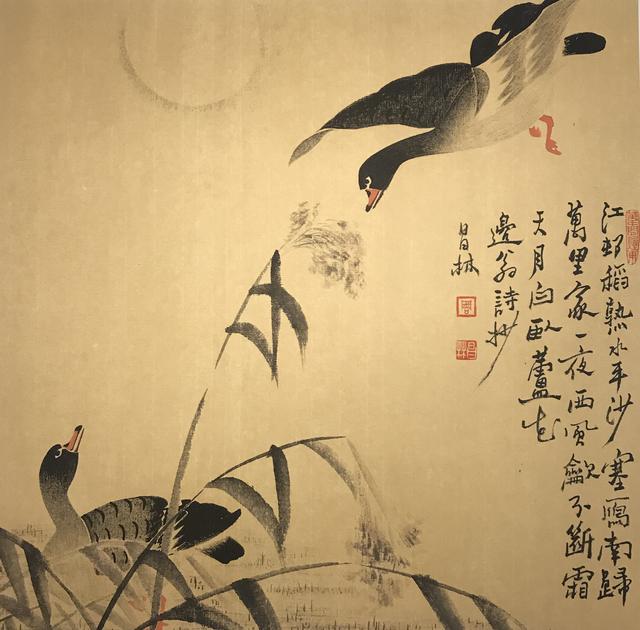 江邨稻熟水平沙塞鴈南歸
萬里家一夜西風龡不斷霜
天月白臥蘆花
邊翁詩抄
昌林